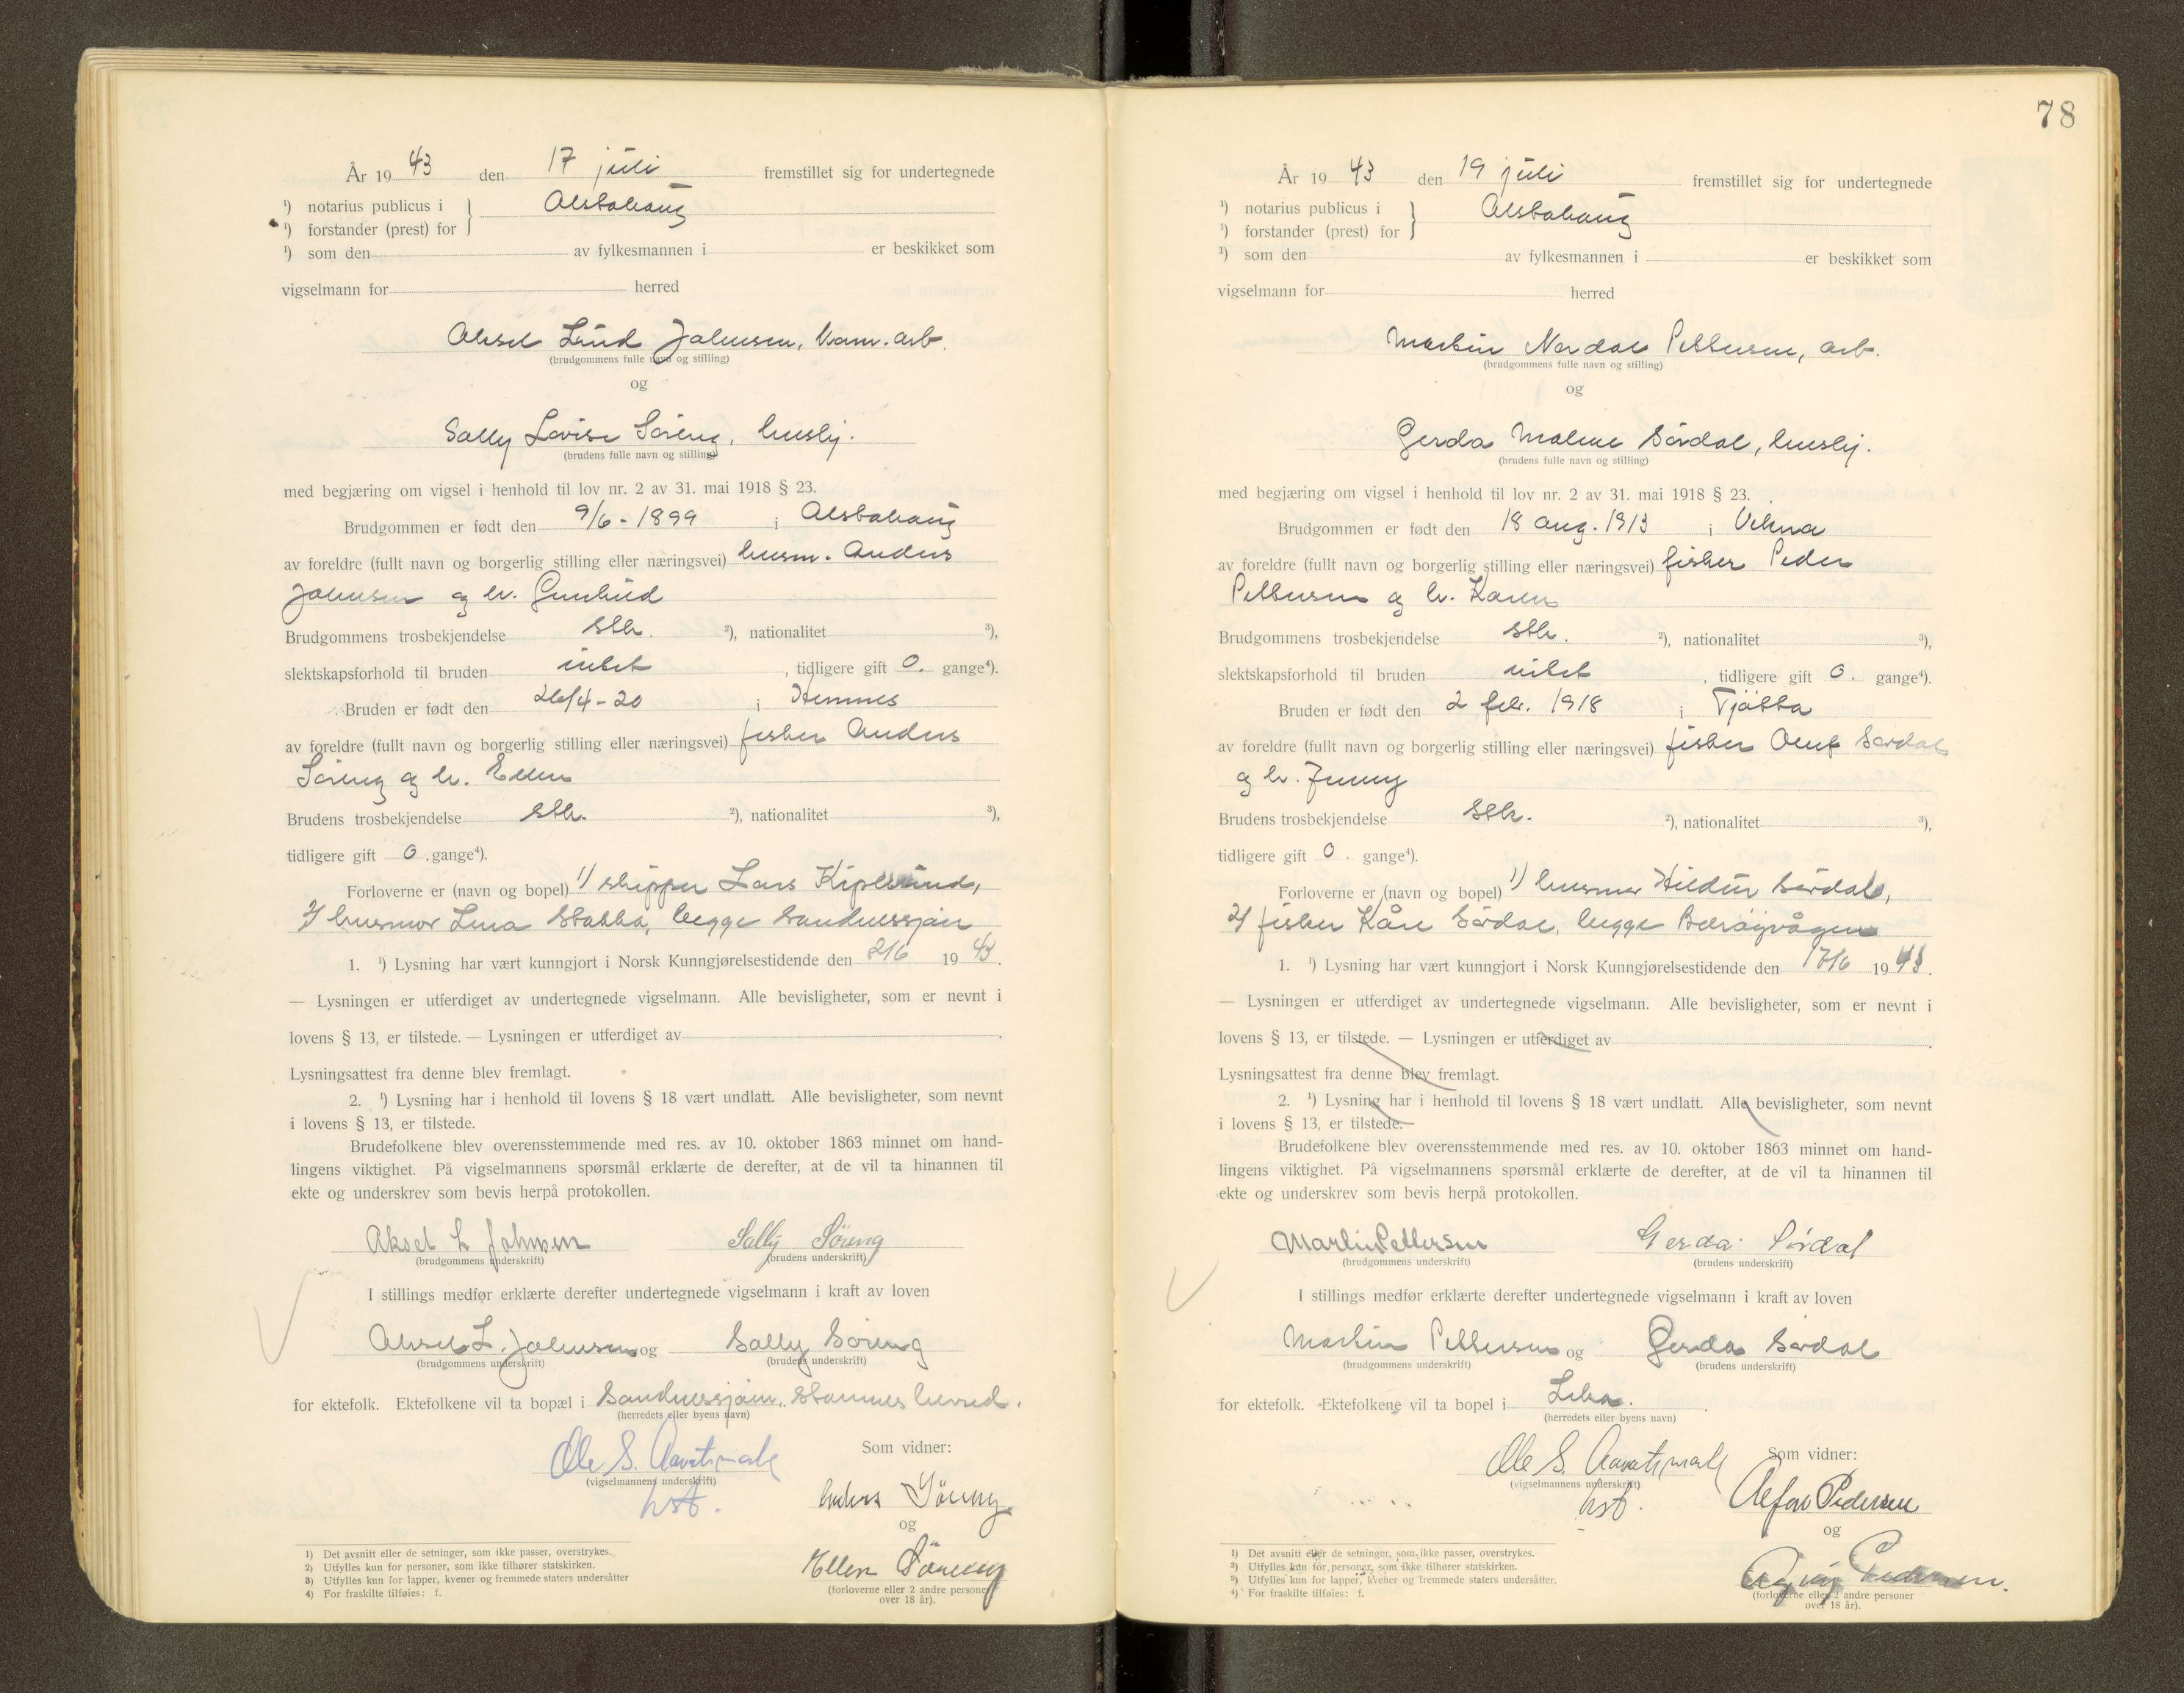 År 1943 den 17 juli fremstillet sig for undertegnede
¹) notarius publicus i } Alstahaug
¹) forstander (prest) for
¹) som den av fylkesmannen i er beskikket som
vigselmann for herred
Aksel Lund Johnsen, kom. arb.
(brudgommens fulle navn og stilling)
og
Sally Lovise Söreng, huslig.
(brudens fulle navn og stilling)
med begjæring om vigsel i henhold til lov nr. 2 av 31. mai 1918 § 23.
Brudgommen er født den 9/6 - 1899 i Alstahaug
av foreldre (fullt navn og borgerlig stilling eller næringsvei) husm. Anders
Johnsen og h.
Brudgommens trosbekjendelse stk. ²), nationalitet ³),
slektskapsforhold til bruden intet, tidligere gift 0. gange⁴).
Bruden er født den 26/4 - 20 i Hemnes
av foreldre (fullt navn og borgerlig stilling eller næringsvei) fisker Anders
Söreng og h. Ellen
Brudens trosbekjendelse stk. ²), nationalitet ³),
tidligere gift 0. gange⁴).
Forloverne er (navn og bopel) 1/ skipper Lars
2/ husmor Lina Stabba, begge Sandnessjöen
1. ¹) Lysning har vært kunngjort i Norsk Kunngjørelsestidende den 2/6 1943.
— Lysningen er utferdiget av undertegnede vigselmann. Alle bevisligheter, som er nevnt i
lovens § 13, er tilstede. — Lysningen er utferdiget av .
Lysningsattest fra denne blev fremlagt.
2. ¹) Lysning har i henhold til lovens § 18 vært undlatt. Alle bevisligheter, som nevnt
i lovens § 13, er tilstede.
Brudefolkene blev overensstemmende med res. av 10. oktober 1863 minnet om hand-
lingens viktighet. På vigselmannens spørsmål erklærte de derefter, at de vil ta hinannen til
ekte og underskrev som bevis herpå protokollen.
Aksel L Johnsen Sally Söreng
(brudgommens underskrift) (brudens underskrift)
I stillings medfør erklærte derefter undertegnede vigselmann i kraft av loven
Aksel L. Johnsen og Sally Söreng
(brudgommens underskrift) (brudens underskrift)
for ektefolk. Ektefolkene vil ta bopæl i Sandnessjöen, Stamnes herred.
(herredets eller byens navn)
Ole S. Aavatsmark Som vidner:
(vigselmannens underskrift)
kst. Anders Söreng
og
Ellen Söreng
(forloverne eller 2 andre personer
over 18 år).
1) Det avsnitt eller de setninger, som ikke passer, overstrykes.
2) Utfylles kun for personer, som ikke tilhører statskirken.
3) Utfylles kun for lapper, kvener og fremmede staters undersåtter
4) For fraskilte tilføies: f.
78
År 1943 den 19 juli fremstillet sig for undertegnede
¹) notarius publicus i } Alstahaug
¹) forstander (prest) for
¹) som den av fylkesmannen i er beskikket som
vigselmann for herred
Martin Nordal Pettersen, arb.
(brudgommens fulle navn og stilling)
og
Gerda Malene Sördal, huslig.
(brudens fulle navn og stilling)
med begjæring om vigsel i henhold til lov nr. 2 av 31. mai 1918 § 23.
Brudgommen er født den 18 aug. 1913 i Vikna
av foreldre (fullt navn og borgerlig stilling eller næringsvei) fisker Peder
Pettersen og h. Karen
Brudgommens trosbekjendelse stk. ²), nationalitet ³),
slektskapsforhold til bruden intet, tidligere gift 0. gange⁴).
Bruden er født den 2 feb. 1918 i Tjötta
av foreldre (fullt navn og borgerlig stilling eller næringsvei) fisker Oluf Sördal
og h. Jenny
Brudens trosbekjendelse stk. ²), nationalitet ³),
tidligere gift 0. gange⁴).
Forloverne er (navn og bopel) 1) husmor Hildur Sördal,
2/ fisker Kåre Sördal, begge
1. ¹) Lysning har vært kunngjort i Norsk Kunngjørelsestidende den 17/6 1943.
— Lysningen er utferdiget av undertegnede vigselmann. Alle bevisligheter, som er nevnt i
lovens § 13, er tilstede. — Lysningen er utferdiget av .
Lysningsattest fra denne blev fremlagt.
2. ¹) Lysning har i henhold til lovens § 18 vært undlatt. Alle bevisligheter, som nevnt
i lovens § 13, er tilstede.
Brudefolkene blev overensstemmende med res. av 10. oktober 1863 minnet om hand-
lingens viktighet. På vigselmannens spørsmål erklærte de derefter, at de vil ta hinannen til
ekte og underskrev som bevis herpå protokollen.
Martin Pettersen Gerda Sördal
(brudgommens underskrift) (brudens underskrift)
I stillings medfør erklærte derefter undertegnede vigselmann i kraft av loven
Martin Pettersen og Gerda Sördal
(brudgommens underskrift) (brudens underskrift)
for ektefolk. Ektefolkene vil ta bopel i Leka.
(herredets eller byens navn)
Ole S. Aavatsmark Som vidner:
(vigselmannens underskrift)
kst. Alfon Pedersen
og
Pedersen.
(forloverne eller 2 andre personer
over 18 år).
1) Det avsnitt eller de setninger, som ikke passer, overstrykes.
2) Utfylles kun for personer, som ikke tilhører statskirken.
3) Utfylles kun for lapper, kvener og fremmede staters undersåtter.
4) For fraskilte tilføies: f.